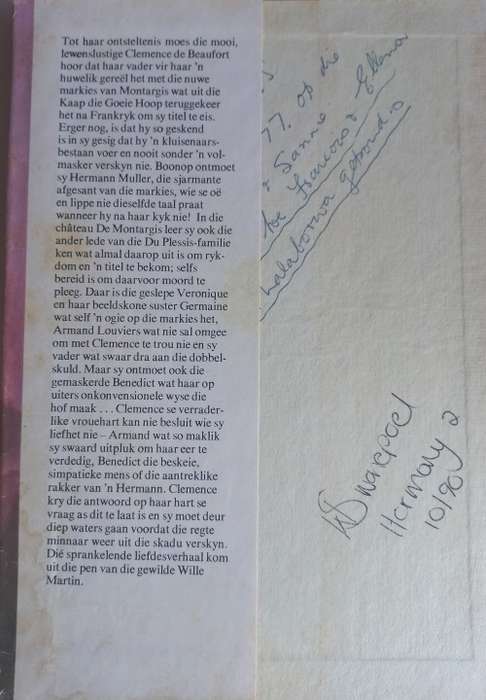 Tot haar ontsteltenis moes die mooi,
lewenslustige Clemence de Beaufort
hoor dat haar vader vir haar 'n
huwelik gereël het met die nuwe
markies van Montargis wat uit die
Kaap die Goeie Hoop teruggekeer
het na Frankryk om sy titel te eis.
Erger nog, is dat hy so geskend
is in sy gesig dat hy 'n kluisenaars-
bestaan voer en nooit sonder 'n vol-
masker verskyn nie. Boonop ontmoet
sy Hermann Muller, die sjarmante
afgesant van die markies, wie se oë
en lippe nie dieselfde taal praat
wanneer hy na haar kyk nie! In die
château De Montargis leer sy ook die
ander lede van die Du Plessis-familie
ken wat almal daarop uit is om ryk-
dom en 'n titel te bekom; selfs
bereid is om daarvoor moord te
pleeg. Daar is die geslepe Veronique
en haar beeldskone suster Germaine
wat self 'n ogie op die markies het,
Armand Louviers wat nie sal omgee
om met Clemence te trou nie en sy
vader wat swaar dra aan die dobbel-
skuld. Maar sy ontmoet ook die
gemaskerde Benedict wat haar op
uiters onkonvensionele wyse die
hof maak . . . Clemence se verrader-
like vrouehart kan nie besluit wie sy
liefhet nie – Armand wat so maklik
sy swaard uitpluk om haar eer te
verdedig, Benedict die beskeie,
simpatieke mens of die aantreklike
rakker van 'n Hermann. Clemence
kry die antwoord op haar hart se
vraag as dit te laat is en sy moet deur
diep waters gaan voordat die regte
minnaar weer uit die skadu verskyn.
Dié sprankelende liefdesverhaal kom
uit die pen van die gewilde Wille
Martin.
77. op die
Sannie
Francois & Ellena
getroud is
Swarepoel
Hermary 2
10/90